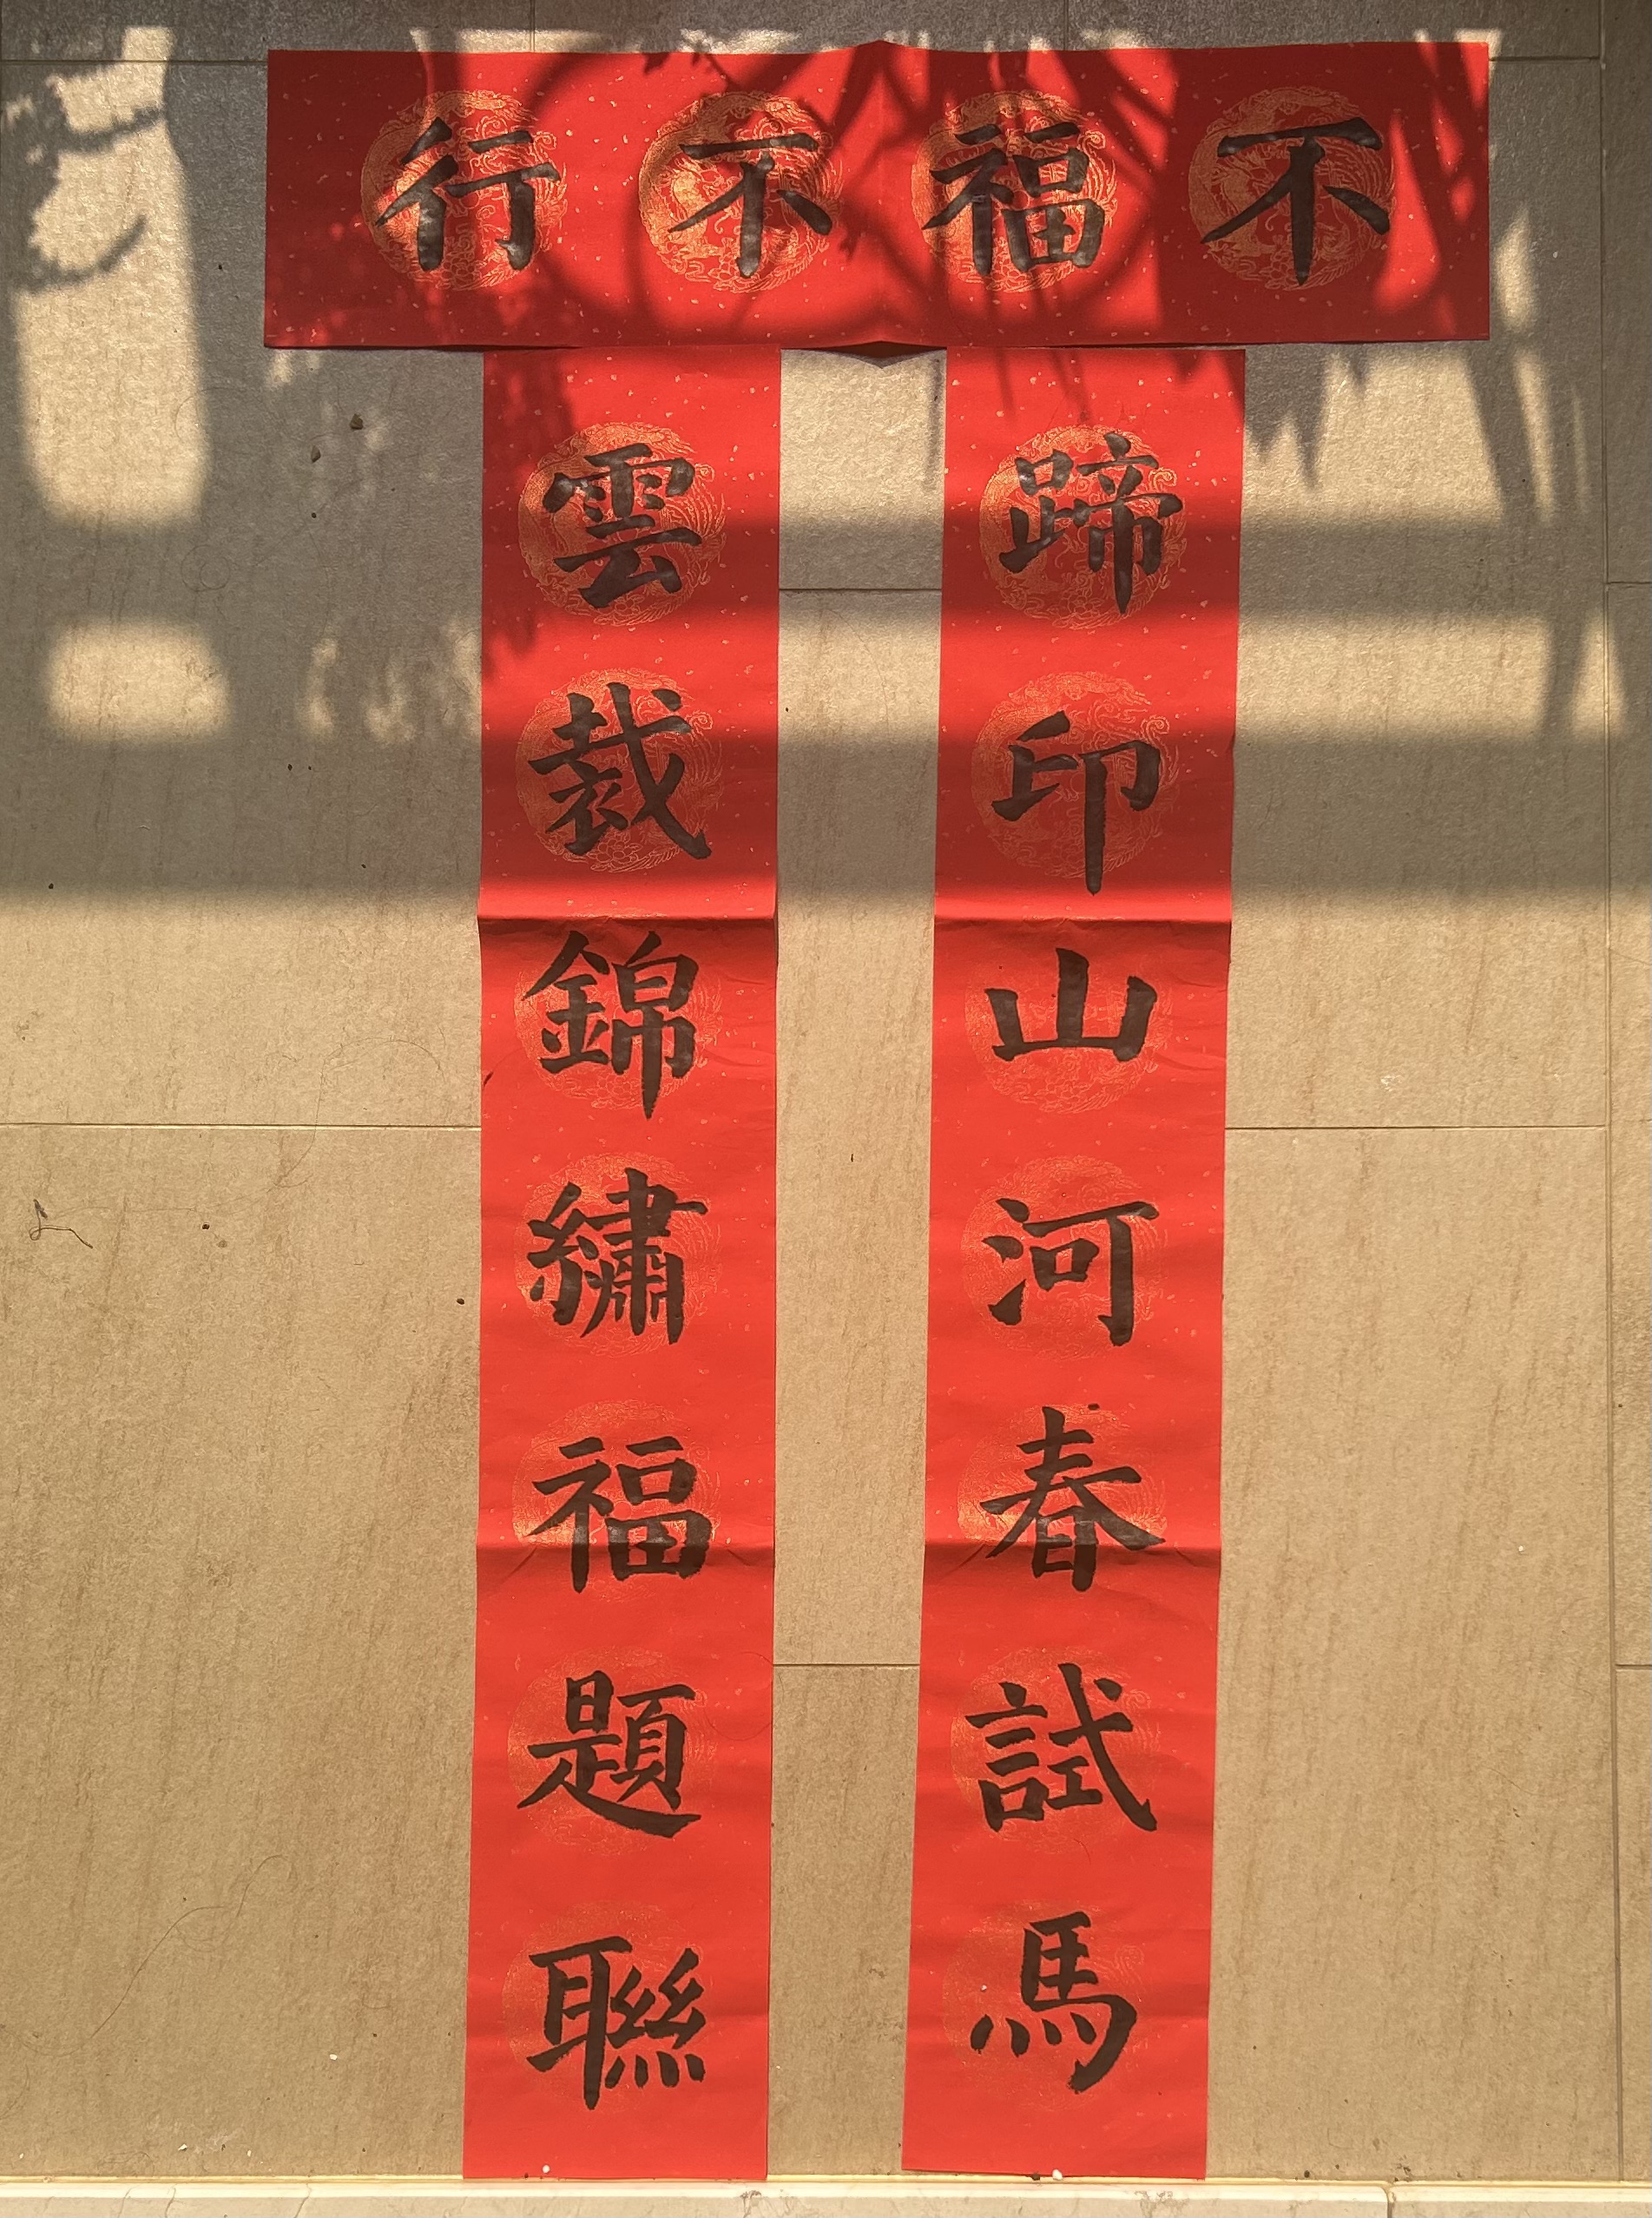 不福不行
蹄印山河春試馬
雲裁錦繡福題聯